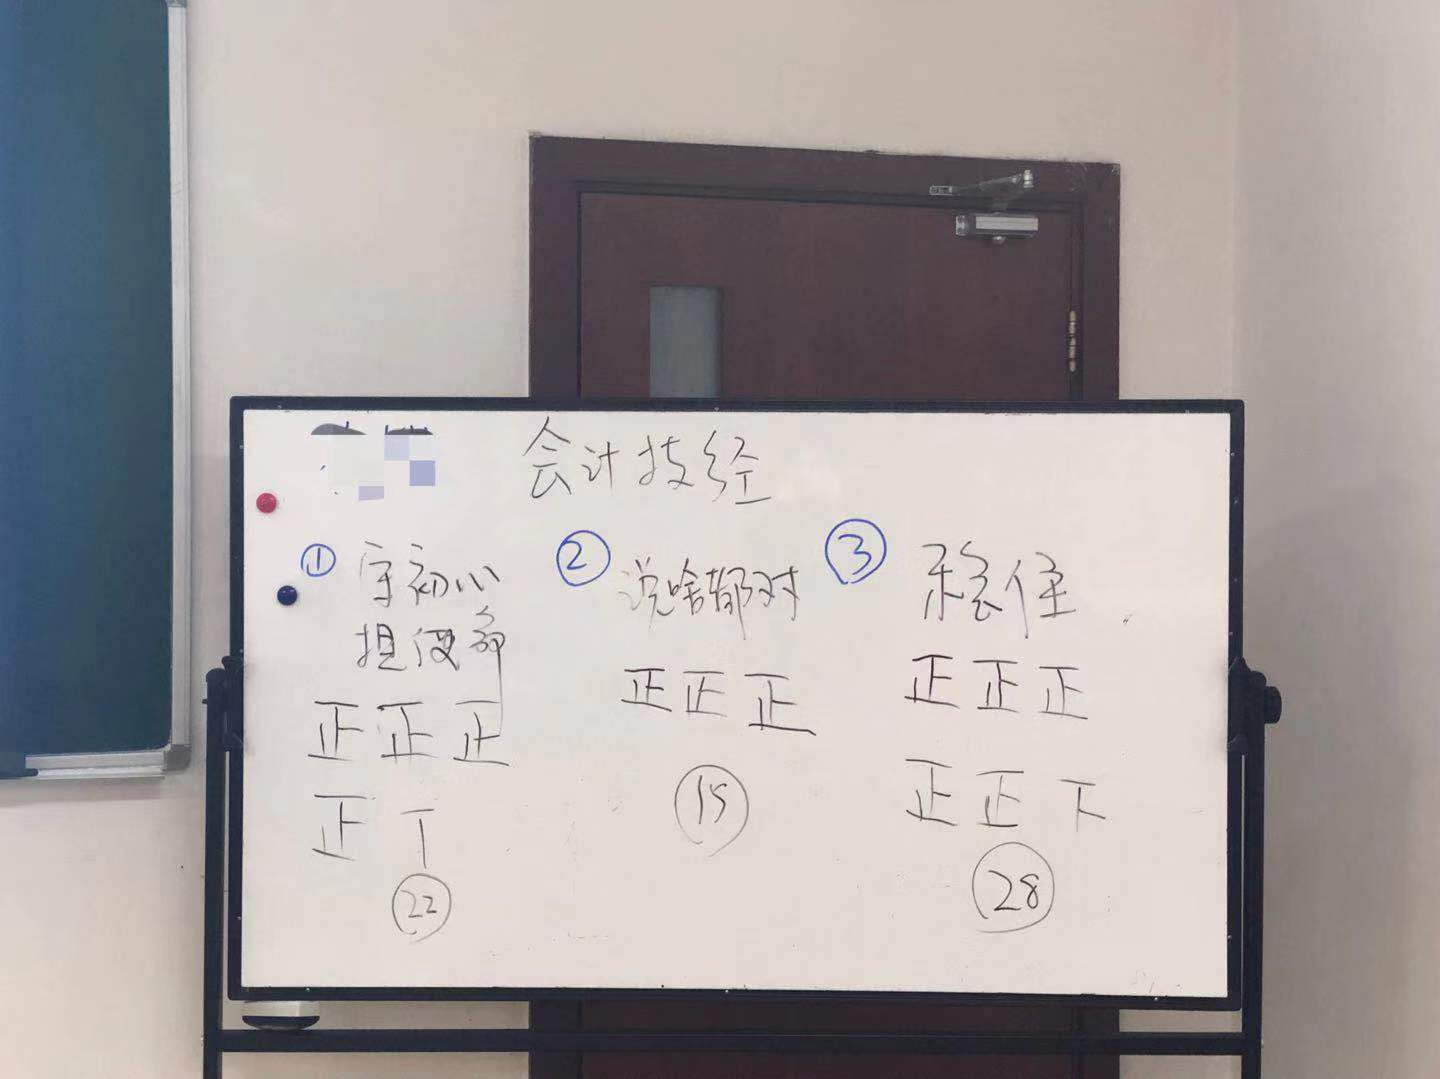 会计技经
① 守初心
担使命
正正正
正丅
22
② 说啥都对
正正正
15
③ 稳住
正正正
正正下
28